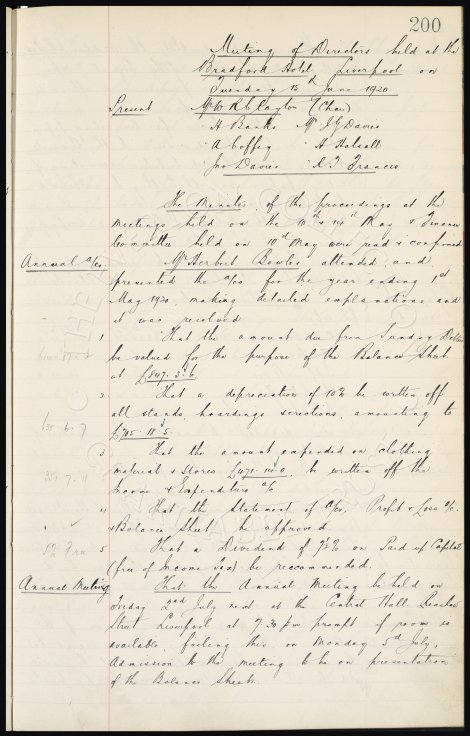 200
Meeting of Directors held at the
Bradford Hotel, Liverpool on
Tuesday 15th June 1920
Present Mr W R Clayton (Chair)
" H Banks Mr J G Davies
" A Coffey " H Halsall
" Jno Davies " R T Francis
The Minutes of the proceedings at the
meetings held on the 10th & 14th May & Finance
Committee held on 10th May were read & confirmed
Annual a/cs Mr Herbert Bowler attended and
presented the a/cs for the year ending 1st
May 1920, making detailed explanations and
it was resolved
1 That the amount due from Sundry Debtors
be valued for the purpose of the Balance Sheet
at £847. 3. 6
2 That a depreciation of 10% be written off
all stands, hoardings & erections, amounting to
£705. 18. 5
3 That the amount expended on clothing
material & Stores £471. 14. 0, be written off the
Income & Expenditure a/c
4 That the Statement of a/cs, Profit & Loss a/c.
& Balance Sheet be approved
5 That a Dividend of 7½% on Paid up Capital
(free of Income tax) be recommended.
Annual Meeting That the Annual Meeting be held on
Friday 2nd July next at the Central Hall Renshaw
Street Liverpool at 7.30 pm prompt if room is
available, failing this, on Monday 5th July.
Admission to the meeting to be on presentation
of the Balance Sheets.